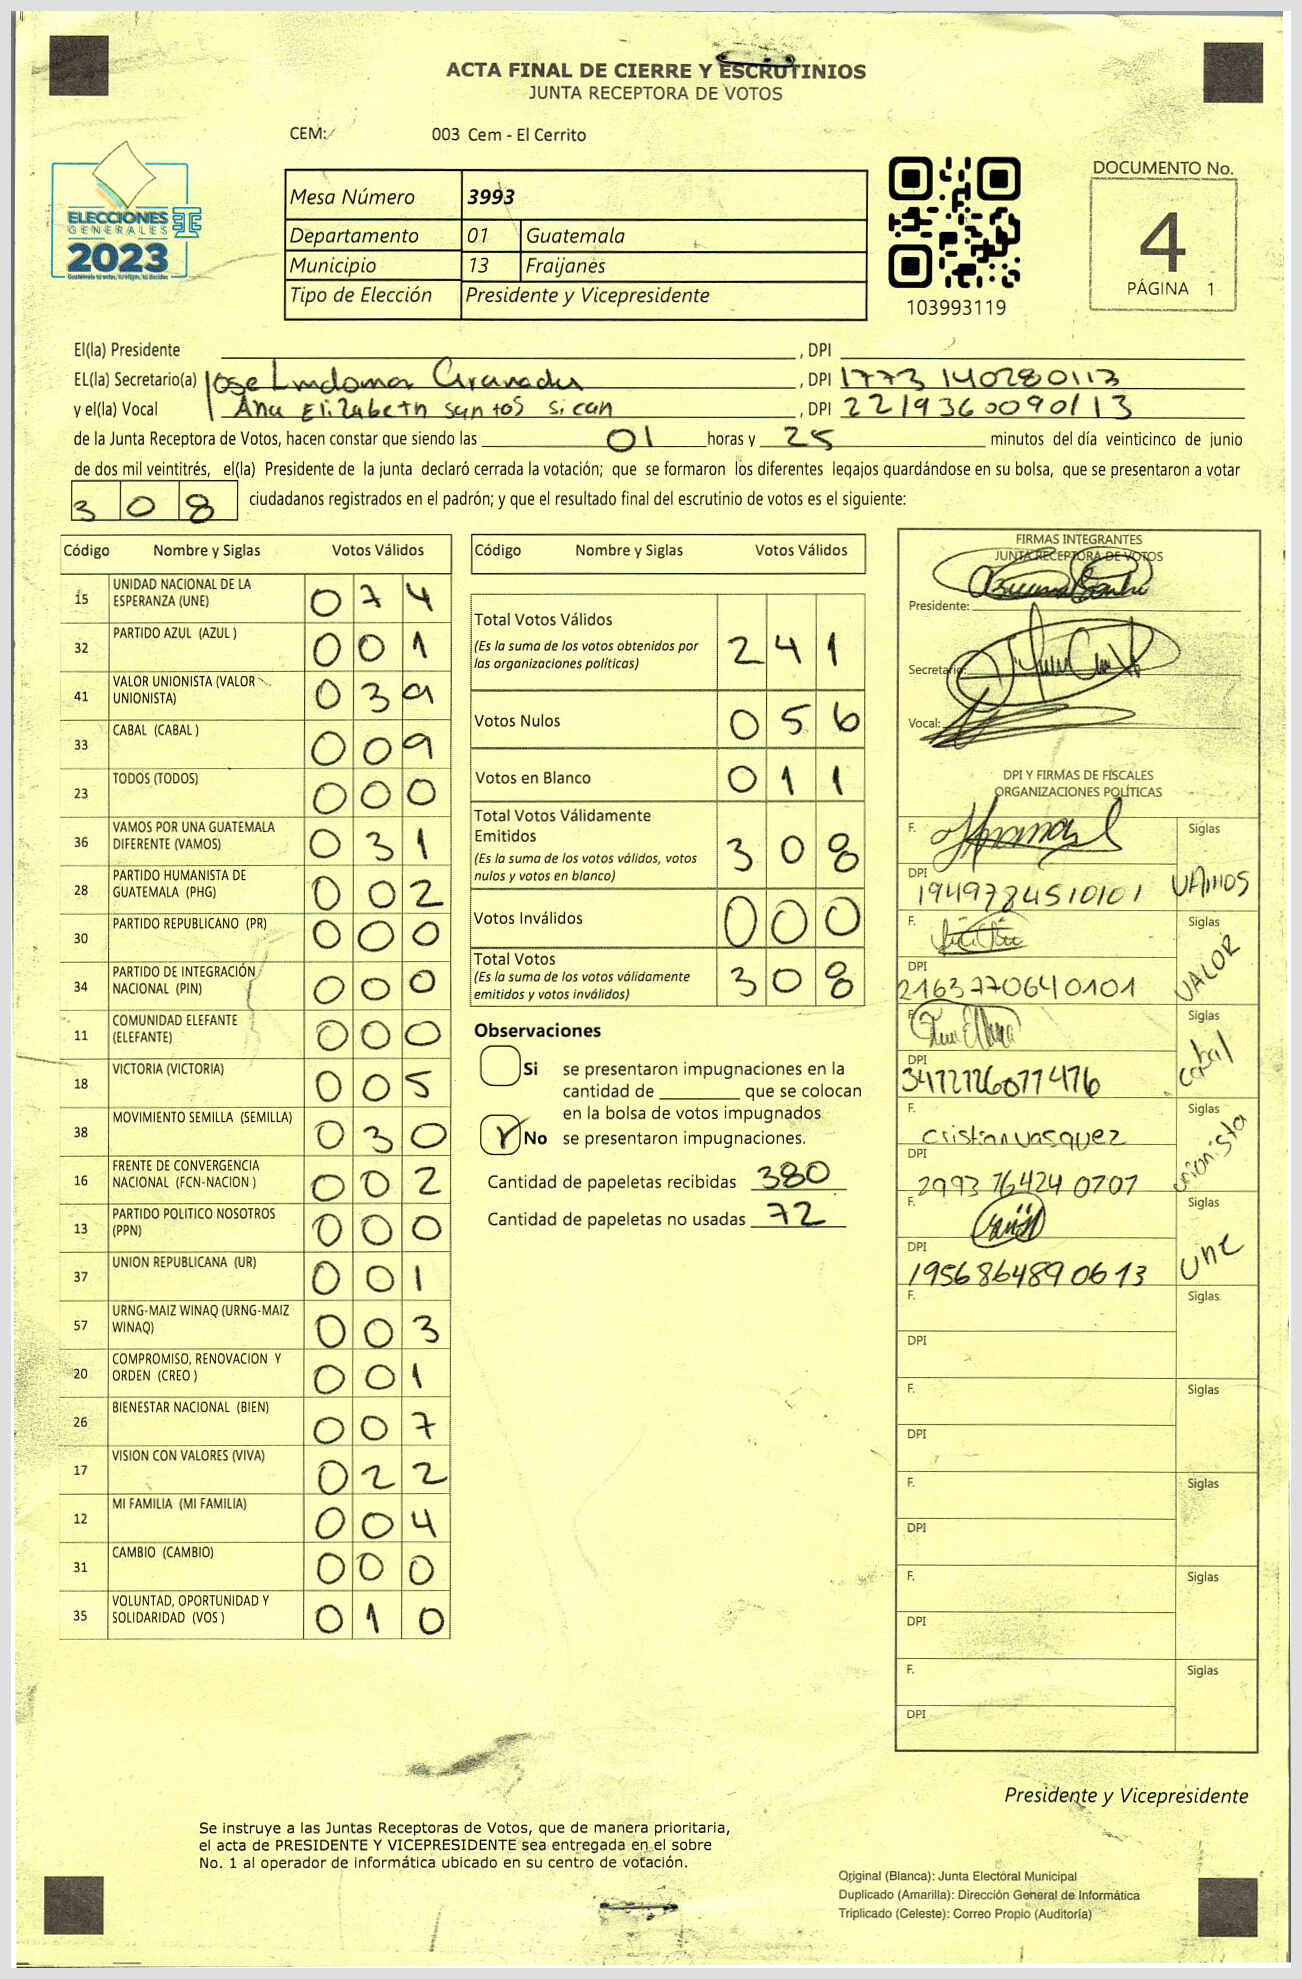 ACTA FINAL DE CIERRE Y ESCRUTINIOS
JUNTA RECEPTORA DE VOTOS
CEM: 003 Cem - El Cerrito
ELECCIONES
GENERALES
2023
Mesa Número 3993
Departamento 01 Guatemala
Municipio 13 Fraijanes
Tipo de Elección Presidente y Vicepresidente
103993119
DOCUMENTO No.
4
PÁGINA 1
El(la) Presidente , DPI
EL(la) Secretario(a) Jose , DPI 1773 140280113
y el(la) Vocal Ana Elizabeth Santos Sican , DPI 2219360090113
de la Junta Receptora de Votos, hacen constar que siendo las 01 horas y 25 minutos del día veinticinco de junio
de dos mil veintitrés, el(la) Presidente de la junta declaró cerrada la votación; que se formaron los diferentes legajos quardándose en su bolsa, que se presentaron a votar
308 ciudadanos registrados en el padrón; y que el resultado final del escrutinio de votos es el siguiente:
Código Nombre y Siglas Votos Válidos
15 UNIDAD NACIONAL DE LA ESPERANZA (UNE) 074
32 PARTIDO AZUL (AZUL ) 001
41 VALOR UNIONISTA (VALOR UNIONISTA) 039
33 CABAL (CABAL ) 009
23 TODOS (TODOS) 000
36 VAMOS POR UNA GUATEMALA DIFERENTE (VAMOS) 031
28 PARTIDO HUMANISTA DE GUATEMALA (PHG) 002
30 PARTIDO REPUBLICANO (PR) 000
34 PARTIDO DE INTEGRACIÓN NACIONAL (PIN) 000
11 COMUNIDAD ELEFANTE (ELEFANTE) 000
18 VICTORIA (VICTORIA) 005
38 MOVIMIENTO SEMILLA (SEMILLA) 030
16 FRENTE DE CONVERGENCIA NACIONAL (FCN-NACION ) 002
13 PARTIDO POLITICO NOSOTROS (PPN) 000
37 UNION REPUBLICANA (UR) 001
57 URNG-MAIZ WINAQ (URNG-MAIZ WINAQ) 003
20 COMPROMISO, RENOVACION Y ORDEN (CREO ) 001
26 BIENESTAR NACIONAL (BIEN) 007
17 VISION CON VALORES (VIVA) 022
12 MI FAMILIA (MI FAMILIA) 004
31 CAMBIO (CAMBIO) 000
35 VOLUNTAD, OPORTUNIDAD Y SOLIDARIDAD (VOS ) 010
Código Nombre y Siglas Votos Válidos
Total Votos Válidos 241
(Es la suma de los votos obtenidos por
las organizaciones políticas)
Votos Nulos 056
Votos en Blanco 011
Total Votos Válidamente
Emitidos 308
(Es la suma de los votos válidos, votos
nulos y votos en blanco)
Votos Inválidos 000
Total Votos 308
(Es la suma de los votos válidamente
emitidos y votos inválidos)
Observaciones
Si se presentaron impugnaciones en la
cantidad de que se colocan
en la bolsa de votos impugnados
No se presentaron impugnaciones.
Cantidad de papeletas recibidas 380
Cantidad de papeletas no usadas 72
FIRMAS INTEGRANTES
JUNTA RECEPTORA DE VOTOS
Presidente:
Secretario:
Vocal:
DPI Y FIRMAS DE FISCALES
ORGANIZACIONES POLÍTICAS
F. Siglas
DPI 1949784510101 VAMOS
F. Siglas
DPI 2163770640101 VALOR
F. Siglas
DPI 3472726077476 cabal
F. cristian vasquez Siglas
DPI 2993 76424 0707 unionista
F. Siglas
DPI 1956864890613 une
F. Siglas
DPI
F. Siglas
DPI
F. Siglas
DPI
F. Siglas
DPI
F. Siglas
DPI
Presidente y Vicepresidente
Se instruye a las Juntas Receptoras de Votos, que de manera prioritaria,
el acta de PRESIDENTE Y VICEPRESIDENTE sea entregada en el sobre
No. 1 al operador de informática ubicado en su centro de votación.
Original (Blanca): Junta Electoral Municipal
Duplicado (Amarilla): Dirección General de Informática
Triplicado (Celeste): Correo Propio (Auditoría)